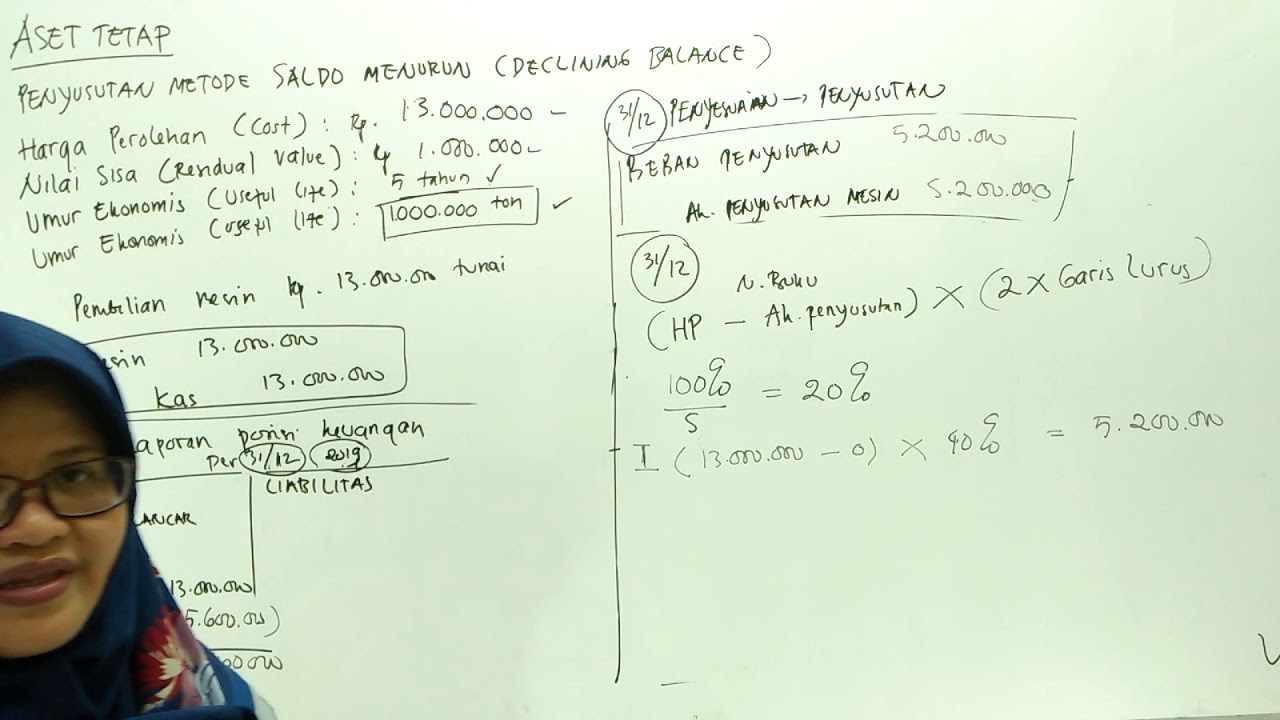 ASET TETAP
PENYUSUTAN METODE SALDO MENURUN (DECLINING BALANCE)
Harga Perolehan (Cost) : Rp. 13.000.000 –
Nilai Sisa (Residual Value) : Rp 1.000.000 –
Umur Ekonomis (Useful Life) : 5 tahun ✓
Umur Ekonomis (useful life) : 1.000.000 ton ✓
Pembilian mesin Rp. 13.000.000 tunai
esin 13.000.000
Kas 13.000.000
aporan posisi keuangan
per 31/12 2019
LIABILITAS
ANCAR
13.000.000
5.600.000)
31/12 PENYESUAIAN → PENYUSUTAN
BEBAN PENYUSUTAN 5.200.000
Ak. PENYUSUTAN MESIN 5.200.000
31/12
N. BUKU
(HP – Ak. penyusutan) × (2 × Garis Lurus)
100% / 5 = 20%
I (13.000.000 – 0) × 40% = 5.200.000